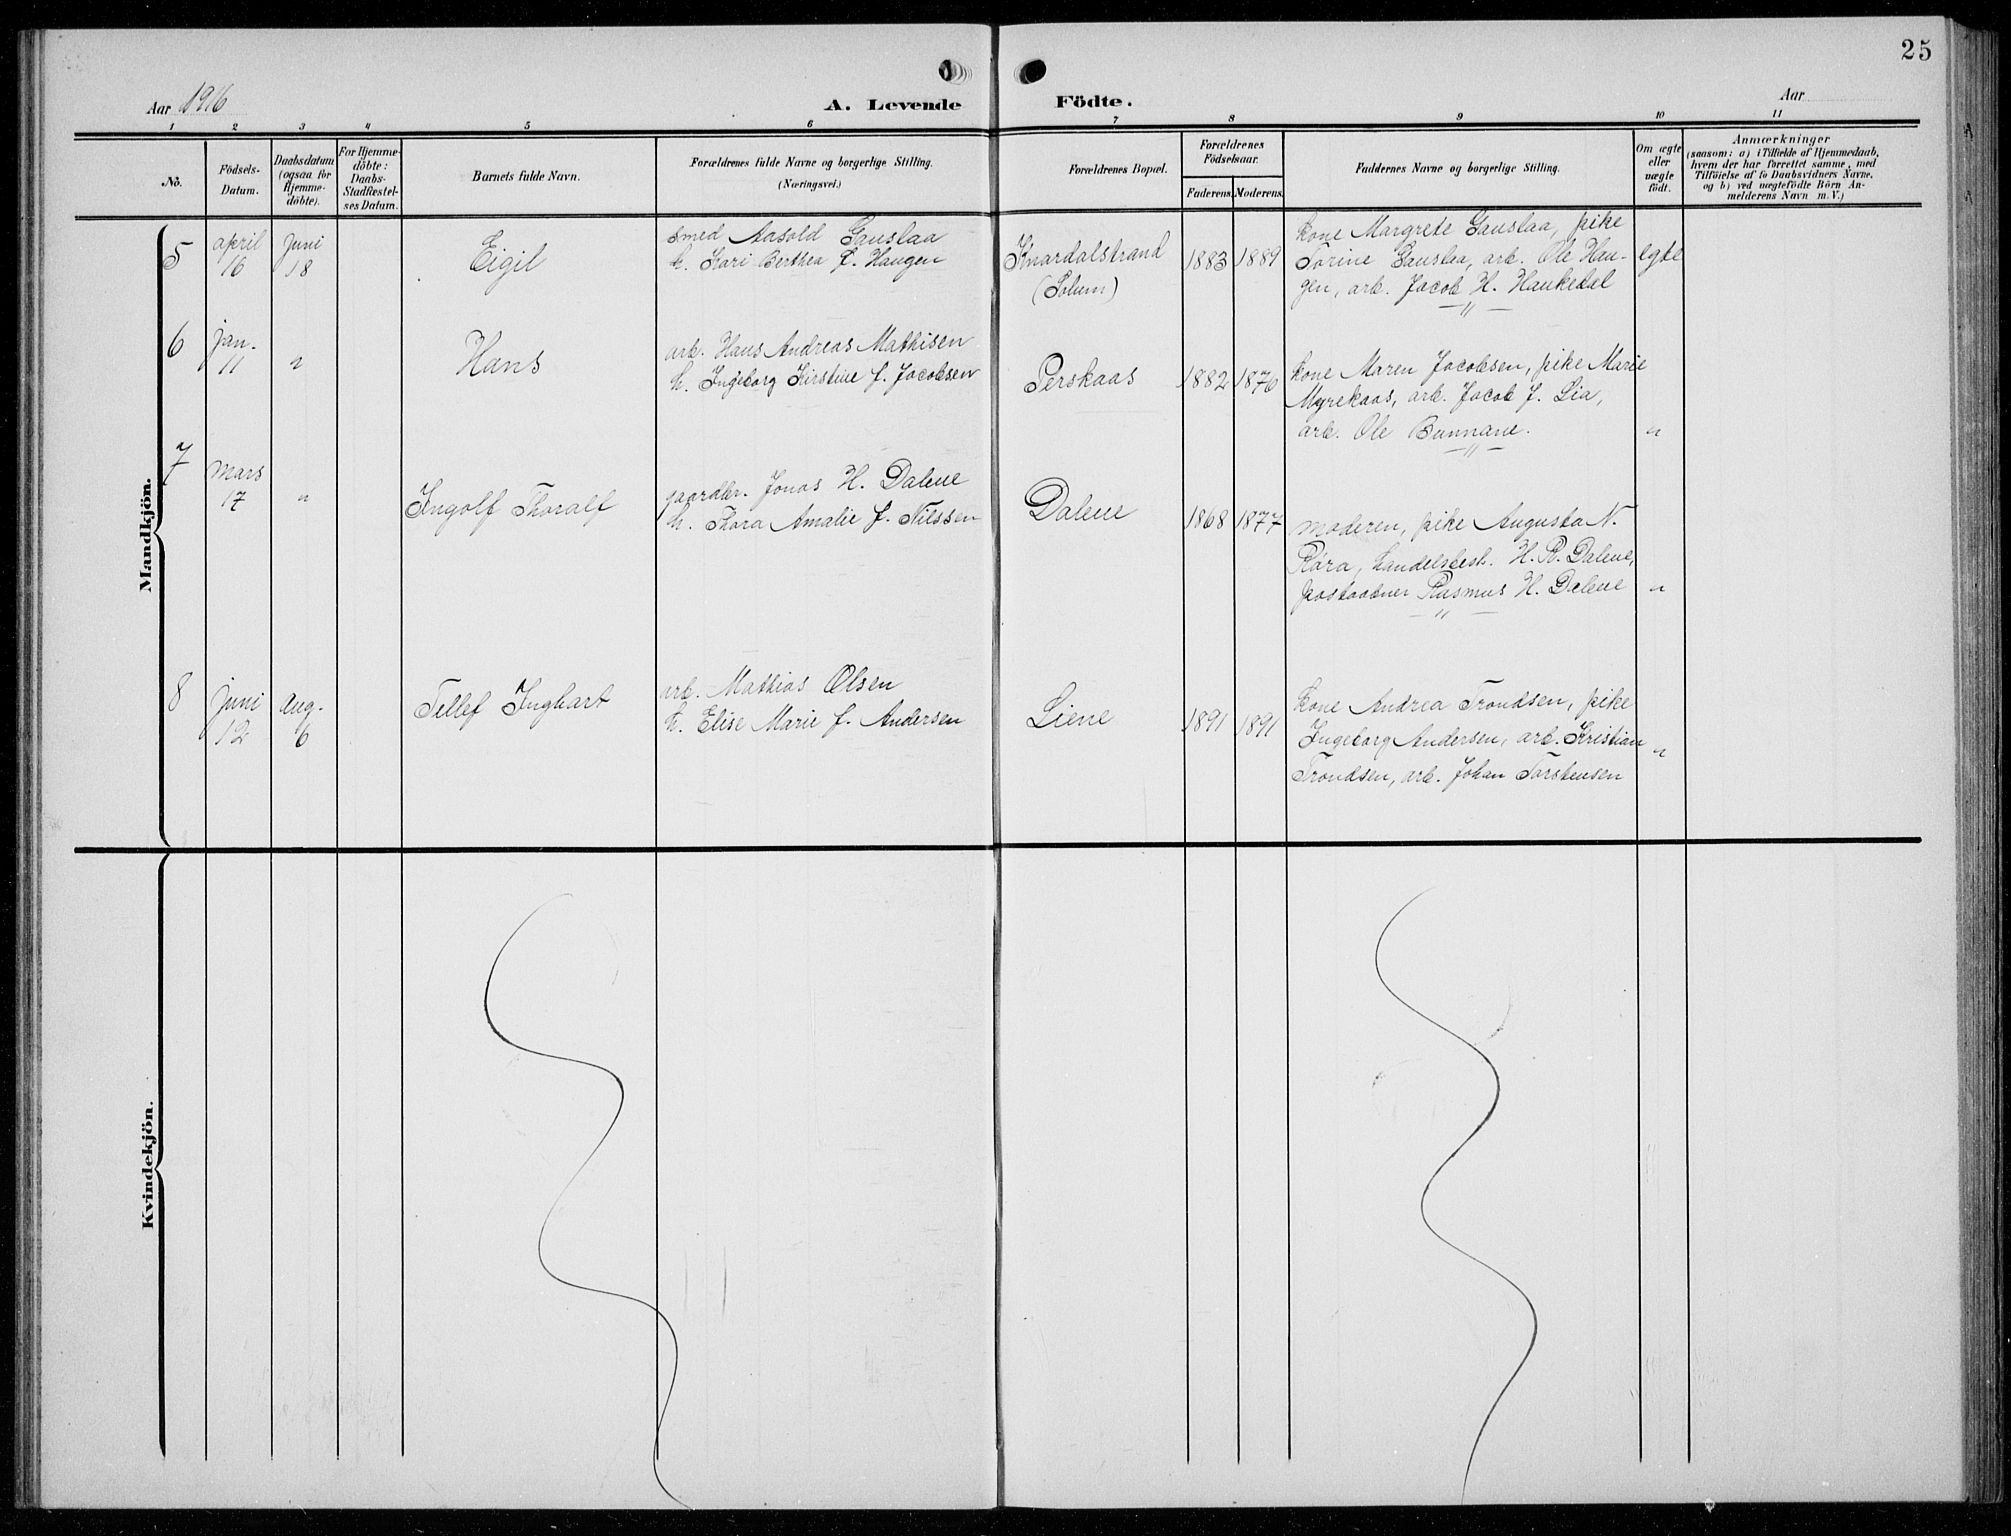 25
Aar 1916
A. Levende Födte.
Aar
1 2 3 4 5 6 7 8 9 10 11
No.
Födsels-
Datum.
Daabsdatum
(ogsaa for
Hjemme-
döbte).
For Hjemme-
döbte:
Daabs-
Stadfæstel-
ses Datum.
Barnets fulde Navn.
Forældrenes fulde Navne og borgerlige Stilling.
(Næringsvei.)
Forældrenes Bopæl.
Forældrenes
Födselsaar.
Faderens.
Moderens.
Faddernes Navne og borgerlige Stilling.
Om ægte
eller
uægte
födt.
Anmærkninger
(saasom: a) i Tilfælde af Hjemmedaab,
hvem der har forrettet samme, med
Tilföielse af to Daabsvidners Navne,
og b) ved uægtefödte Börn An-
melderens Navn m. V.)
Mandkjön.
5
april
16
Juni
18
Eigil
Smed Aasold Gauslaa
h. Kari Berthea f. Haugen
Knardalstrand
(Solum)
1883
1889
Kone Margrete Gauslaa, pike
Torine Gauslaa, arb. Ole Hau-
gen, arb. Jacob H. Haukedal
— " —
egte
6
Jan.
11
"
Hans
arb. Hans Andreas Mathisen
h. Ingeborg Kirstine f. Jacobsen
Perskaas
1882
1876
Kone Maren Jacobsen, pike Marie
Myrekaas, arb. Jacob J. Lia,
arb. Ole Bunnane.
— " —
"
7
Mars
17
"
Ingolf Thoralf
gaardbr. Jonas H. Dalene
h. Thora Amalie f. Nilssen
Dalene
1868
1877
Moderen, pike Augusta N.
Røra, handelsbest. H. R. Dalene,
postaabner Rasmus H. Dalene
— " —
"
8
Juni
12
Aug.
6
Tellef Inghart
arb. Mathias Olsen
h. Elise Marie f. Andersen
Liene
1891
1891
Kone Andrea Trondsen, pike
Ingeborg Andersen, arb. Kristian
Trondsen, arb. Johan Torstensen
"
Kvindekjön.